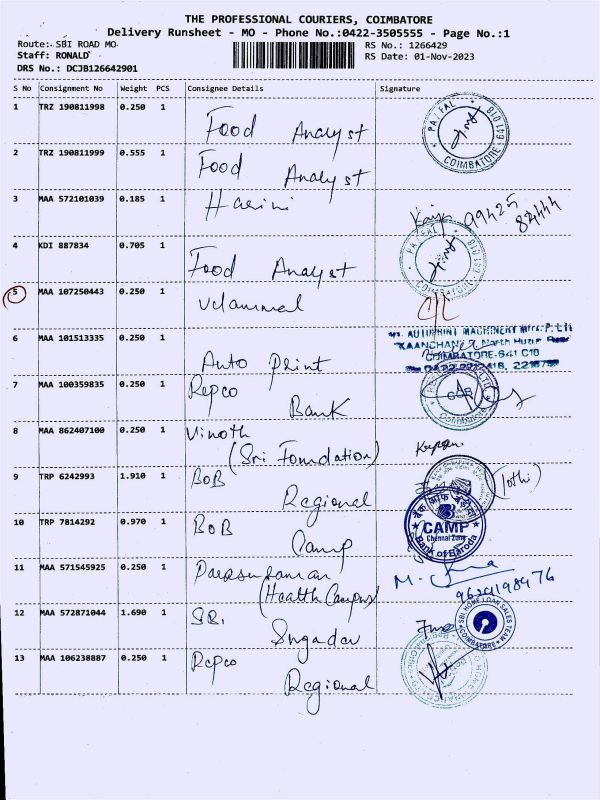 THE PROFESSIONAL COURIERS, COIMBATORE
Delivery Runsheet - MO - Phone No.:0422-3505555 - Page No.:1
Route: SBI ROAD MO
RS No.: 1266429
Staff: RONALD
RS Date: 01-Nov-2023
DRS No.: DCJB126642901
S No Consignment No Weight PCS Consignee Details Signature
1 TRZ 190811998 0.250 1 Food Analyst
COIMBATORE 641 018
2 TRZ 190811999 0.555 1 Food Analyst
3 MAA 572101039 0.185 1 Harini
99425
84444
4 KDI 887834 0.705 1 Food Analyst
COIMBATORE 641 018
5 MAA 107250443 0.250 1 Velammal
6 MAA 101513335 0.250 1 Auto Print
AUTOPRINT MACHINERY
COIMBATORE-641 018
7 MAA 100359835 0.250 1 Repco Bank
Coimbatore
8 MAA 862407100 0.250 1 Vinoth
(Sri Foundation)
9 TRP 6242993 1.910 1 BOB Regional
10 TRP 7814292 0.970 1 BOB Camp
CAMP
Chennai Zone
Bank of Baroda
11 MAA 571545925 0.250 1 Parasuraman
(Health Campus)
9629198976
12 MAA 572871044 1.690 1
SBI HOME LOAN SALES TEAM
COIMBATORE
13 MAA 106238887 0.250 1 Repco Regional